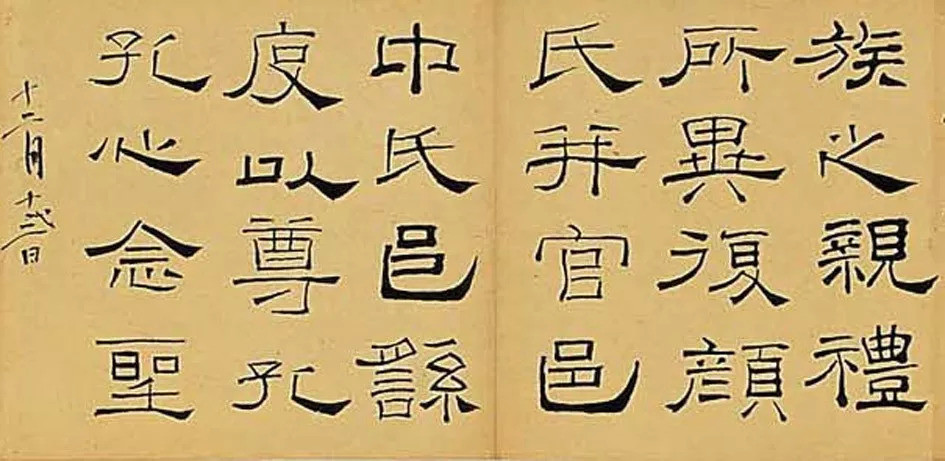 族之親禮
所異復顏
氏并官邑
中氏邑繇
度以尊孔
孔心念聖
十二月十日